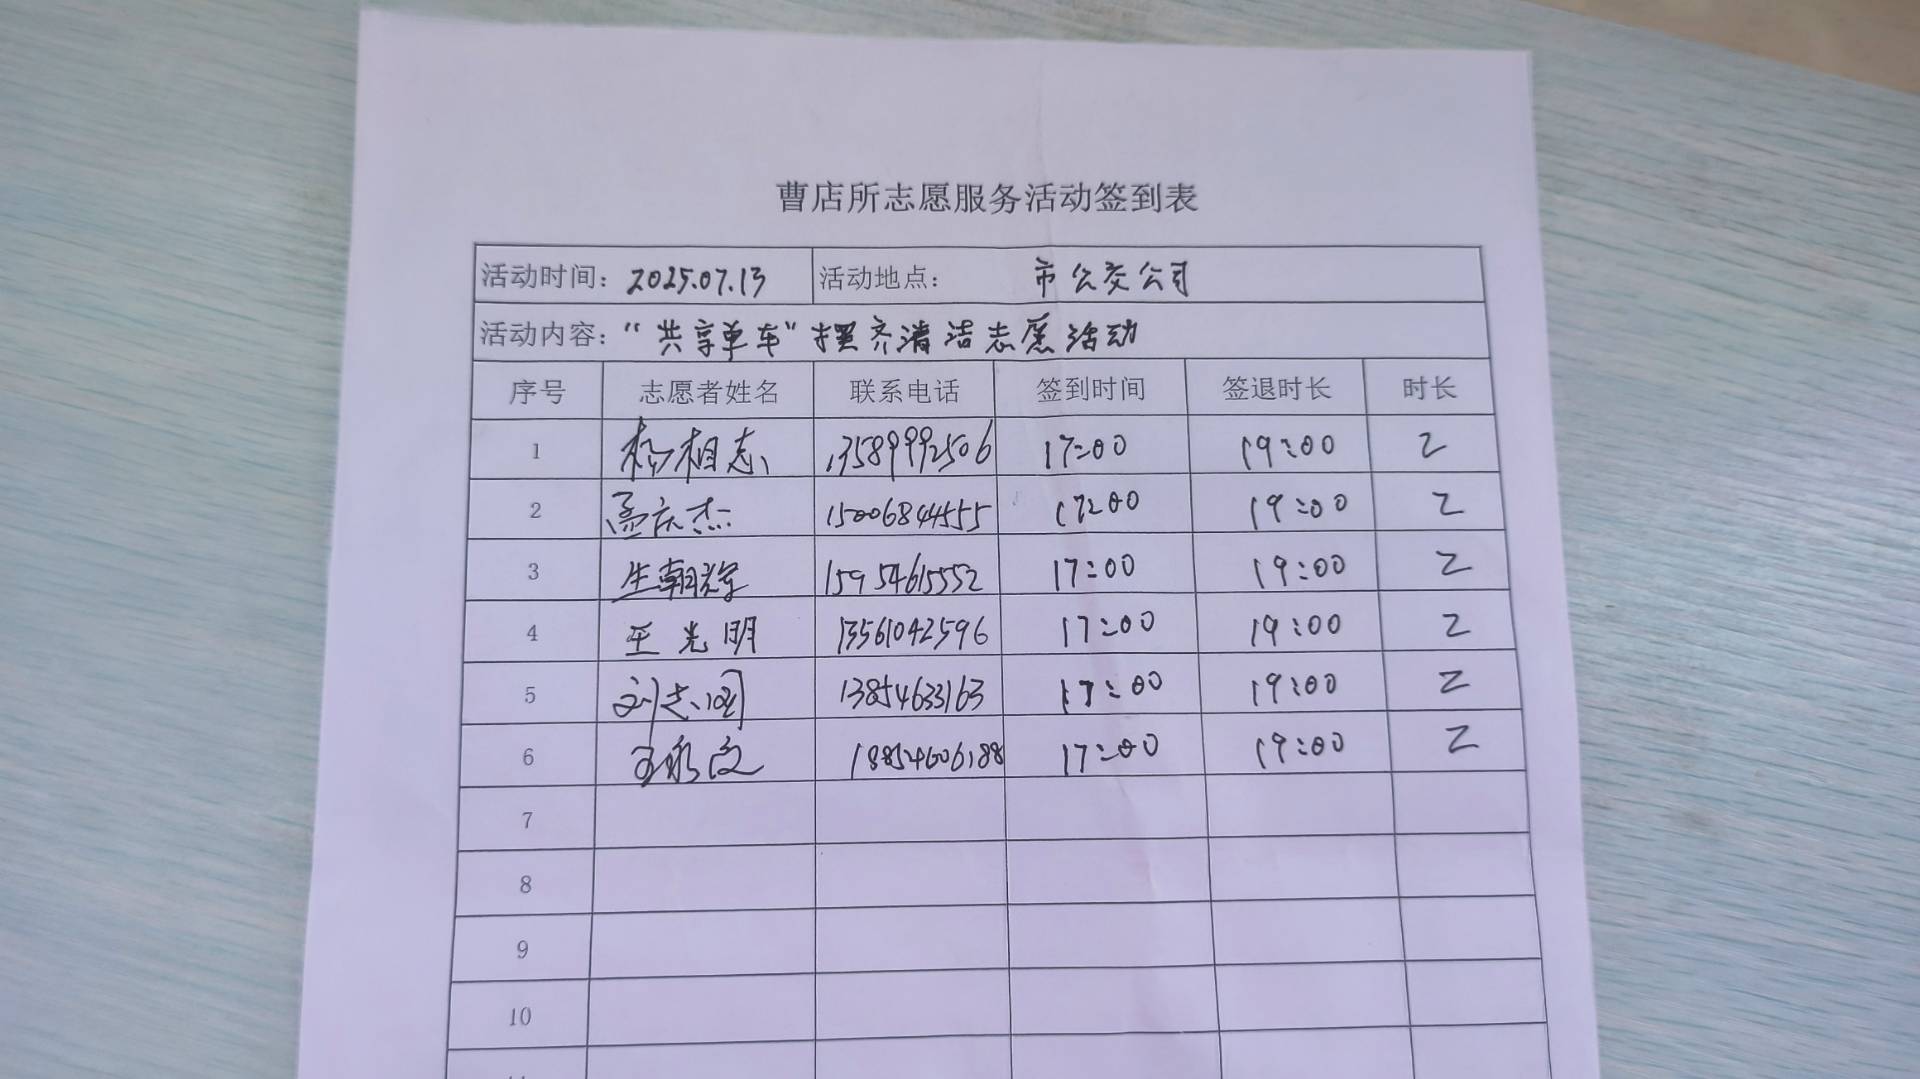 曹店所志愿服务活动签到表
活动时间：2025.07.13 活动地点：市公交公司
活动内容：“共享单车”摆齐清洁志愿活动
序号 志愿者姓名 联系电话 签到时间 签退时长 时长
1 杨相志 13589992506 17:00 19:00 2
2 孟庆杰 15006844555 17:00 19:00 2
3 生朝辉 15954615552 17:00 19:00 2
4 王光明 13561042596 17:00 19:00 2
5 刘志国 13854633163 17:00 19:00 2
6 王永文 18854606188 17:00 19:00 2
7
8
9
10